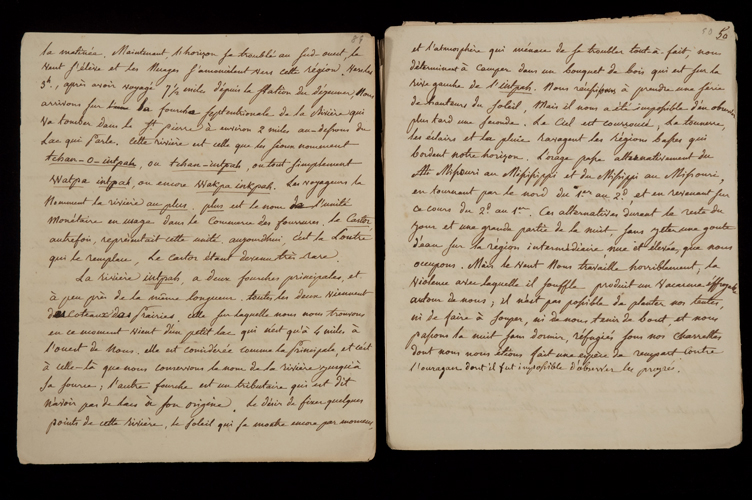 59
la matinée. Maintenant l'horizon se trouble au Sud-ouest, le
vent s'élève et les Nuages s'amoncelent vers cette région. Vers les
3h., après avoir voyagé 7½ miles depuis la station du déjeuner Nous
arrivons sur la fourche septentrionale de la Rivière qui
va tomber dans le St pierre à environ 2 miles au-dessous du
Lac qui Parle. Cette rivière est celle que les sioux nomment
tchan-o-intpah, ou tchan-intpah, ou tout simplement
Watpa intpah, ou encore Wakpa inkpah. Les voyageurs la
Nomment la rivière au plus, plus est le nom de l'unité
monétaire en usage dans le Commerce des fourrures, le Castor
autrefois, représentait cette unité, aujourd'hui, c'est la Loutre
qui le remplace, le Castor étant devenu très rare.
La rivière intpah, a deux fourches principales, et
à peu près de la même longueur, toutes les deux viennent
des Coteaux des Prairies, celle sur laquelle nous nous trouvons
en ce moment vient d'un petit lac qui n'est qu'à 4 miles à
l'ouest de Nous. elle est considérée comme la Principale, et c'est
à celle-là que nous conservons le nom de la rivière jusqu'à
sa source; l'autre fourche est un tributaire qui est dit
n'avoir pas de lacs à son origine. Le désir de fixer quelques
points de cette rivière, le Soleil qui se montre encore par moments
50
et l'atmosphère qui menace de se troubler tout-à-fait, nous
déterminent à camper dans un bouquet de bois qui est sur la
rive gauche de l'intpah. Nous réussissons à prendre une série
de hauteurs du Soleil. Mais il nous a été impossible d'en observer
plus tard une seconde. Le Ciel est courroucé, Le tonnerre,
les éclairs et la pluie ravagent les régions basses qui
bordent notre horizon. L'orage passe alternativement du
Missouri au Mississippi et du Missippi au Missouri,
en tournant par le nord du 1er au 2d, et en revenant sur
ce cours du 2d au 1er. Ces alternatives durent le reste du
jour et une grande partie de la nuit, sans jeter une goute
d'eau sur la région intermédiaire nue et élevée, que nous
occupons. Mais le vent Nous travaille horriblement, la
violence avec laquelle il souffle produit un vacarme effroyable
autour de nous; il n'est pas possible de planter nos tentes,
ni de faire à souper, ni de nous tenir de bout, et nous
passons la nuit sans dormir, réfugiés sous nos Charrettes
dont nous nous étions fait une espèce de rempart contre
l'ouragan dont il fut impossible d'observer les progrès.